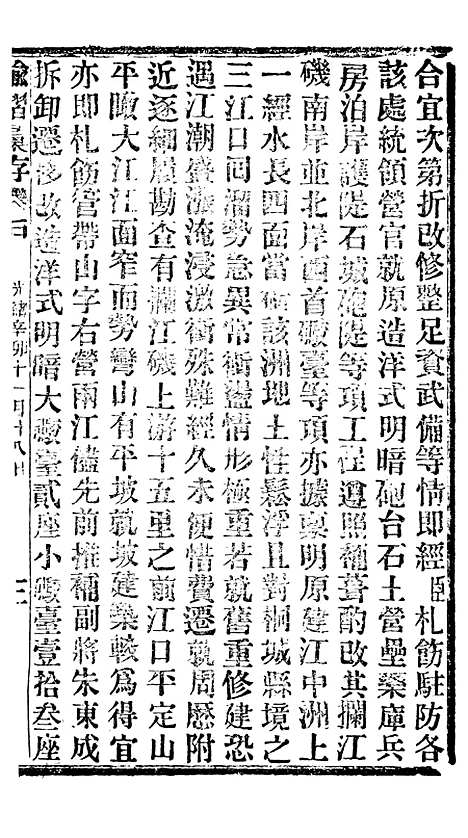 合宜次第折改修整足資武備等情即經臣札飭駐防各
該處統領營官就原造洋式明暗砲台石土營壘藥庫兵
房泊岸護隄石城砲隄等項工程遵照補葺酌改其攔江
磯南岸並北岸酉首礮臺等項亦據稟明原建江中洲上
一經水長四面當衝該洲地土性鬆浮且對桐城縣境之
三江口囘溜勢急異常衝盪情形極重若就舊重修建恐
遇江潮盛漲淹浸激衝殊難經久未便惜費遷就周歷附
近逐細履勘查有攔江磯上游十五里之前江口平定山
平瞰大江江面窄而勢彎山有平坡就坡建築較爲得宜
亦即札飭管帶山字右營兩江儘先前推補副將朱東成
拆卸遷移改造洋式明暗大礮臺貳座小礮臺壹拾叁座
光緒辛卯十一月十八日 三